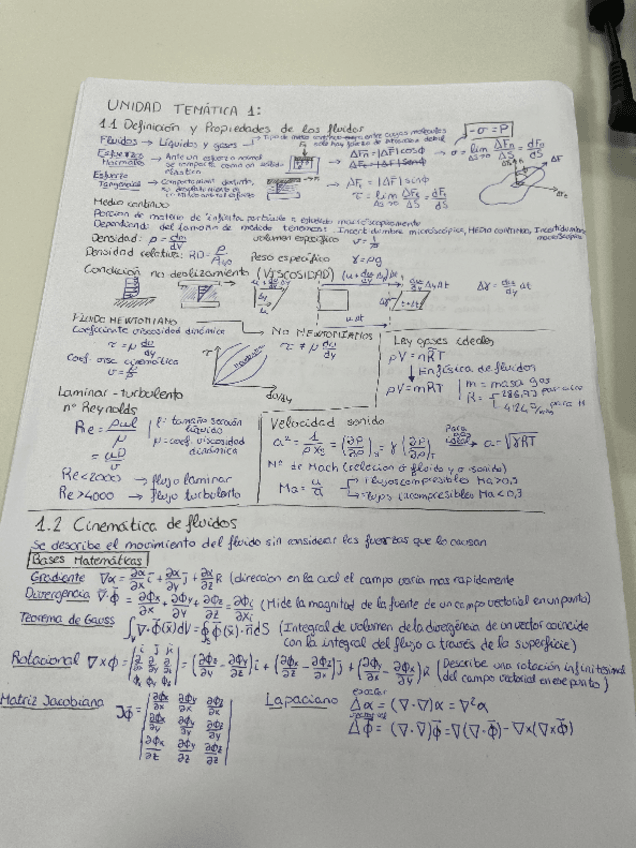 UNIDAD TEMÁTICA 1:
1.1 Definición y Propiedades de los fluidos
-σ = P
Fluidos → Líquidos y gases → Tipo de medio continuo entre cuyas moléculas
solo hay fuerza de atracción débil
Esfuerzos Normales → Ante un esfuerzo normal se comporta como un sólido elástico
→ ΔFn = |ΔF| cosϕ → σ = lim ΔS→0 ΔFn/ΔS = dFn/dS
Esfuerzo Tangencial → Comportamiento distinto,
→ ΔFs = |ΔF| sinϕ
τ = lim ΔS→0 ΔFs/ΔS = dFs/dS
Medio continuo
Porción de materia de infinitas partículas a estudiar macroscópicamente
Dependiendo del tamaño de medida tenemos: Incertidumbre microscópica, Medio continuo, Incertidumbre macroscópica
Densidad: ρ = dm/dV volumen específico v = 1/ρ
Densidad relativa: RD = ρ/ρH₂O Peso específico γ = ρg
Condición no deslizamiento (VISCOSIDAD) (u + du/dy Δy)Δt
u + du/dy Δy
Δy
u
du/dy ΔyΔt
uΔt
Δγ = du/dy Δt
FLUIDO NEWTONIANO
Coeficiente viscosidad dinámica
τ = μ du/dy
Coef. visc cinemática
ν = μ/ρ
τ
newtoniano
du/dy
No NEWTONIANOS
τ ≠ μ du/dy
Ley gases ideales
pV = nRT
↓ En física de fluidos
pV = mRT
m = masa gas
R = 286,93 para aire
Laminar - turbulento
nº Reynolds
Re = ρul/μ
l: tamaño según líquido
μ = coef. viscosidad dinámica
= uD/ν
Re < 2000 → flujo laminar
Re > 4000 → flujo turbulento
Velocidad sonido
a² = 1/ρχs = (∂p/∂ρ)s = γ(∂p/∂ρ)T
→ a = √γRT
Nº de Mach (relación σ fluido y σ sonido)
Ma = u/a
→ flujos compresibles Ma > 0,3
→ flujos incompresibles Ma < 0,3
1.2 Cinemática de fluidos
Se describe el movimiento del fluido sin considerar las fuerzas que lo causan
Bases Matemáticas
Gradiente ∇α = ∂α/∂x i + ∂α/∂y j + ∂α/∂z k (dirección en la cual el campo varía mas rapidamente
Divergencia ∇·ϕ = ∂ϕx/∂x + ∂ϕy/∂y + ∂ϕz/∂z = ∂ϕi/∂xi (Mide la magnitud de la fuente de un campo vectorial en un punto)
Teorema de Gauss ∫v ∇·ϕ(x̄)dV = ∮s ϕ(x̄)·n̄ dS (Integral de volumen de la divergencia de un vector coincide
con la integral del flujo a través de la superficie)
Rotacional ∇×ϕ = |i j k; ∂/∂x ∂/∂y ∂/∂z; ϕx ϕy ϕz| = (∂ϕz/∂y - ∂ϕy/∂z)i + (∂ϕx/∂z - ∂ϕz/∂x)j + (∂ϕy/∂x - ∂ϕx/∂y)k (Describe una rotación infinitesimal
del campo vectorial en ese punto)
Matriz Jacobiana Jϕ̄ = |∂ϕx/∂x ∂ϕy/∂x ∂ϕz/∂x
∂ϕx/∂y ∂ϕy/∂y ∂ϕz/∂y
∂ϕx/∂z ∂ϕy/∂z ∂ϕz/∂z|
Lapaciano
escalar
Δα = (∇·∇)α = ∇²α
vectorial
Δϕ̄ = (∇·∇)ϕ̄ = ∇(∇·ϕ̄) - ∇×(∇×ϕ̄)